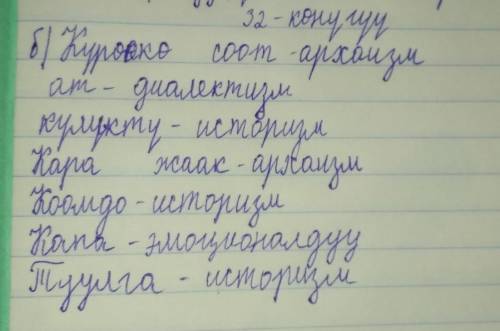 32-көнүгүү
б) Куроско соот - архаизм
ат - диалектизм
кулукту - историзм
Кара жаак - архаизм
Коомдо - историзм
Капа - эмоционалдуу
Туулга - историзм